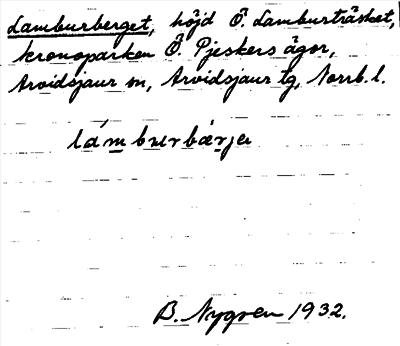 Lamburberget, höjd Ö. Lamburträsket,
kronoparken Ö. Pjeskers ägor,
Arvidsjaur sn, Arvidsjaur tg, Norrb. l.
lámburbärja
B. Nygren 1932.